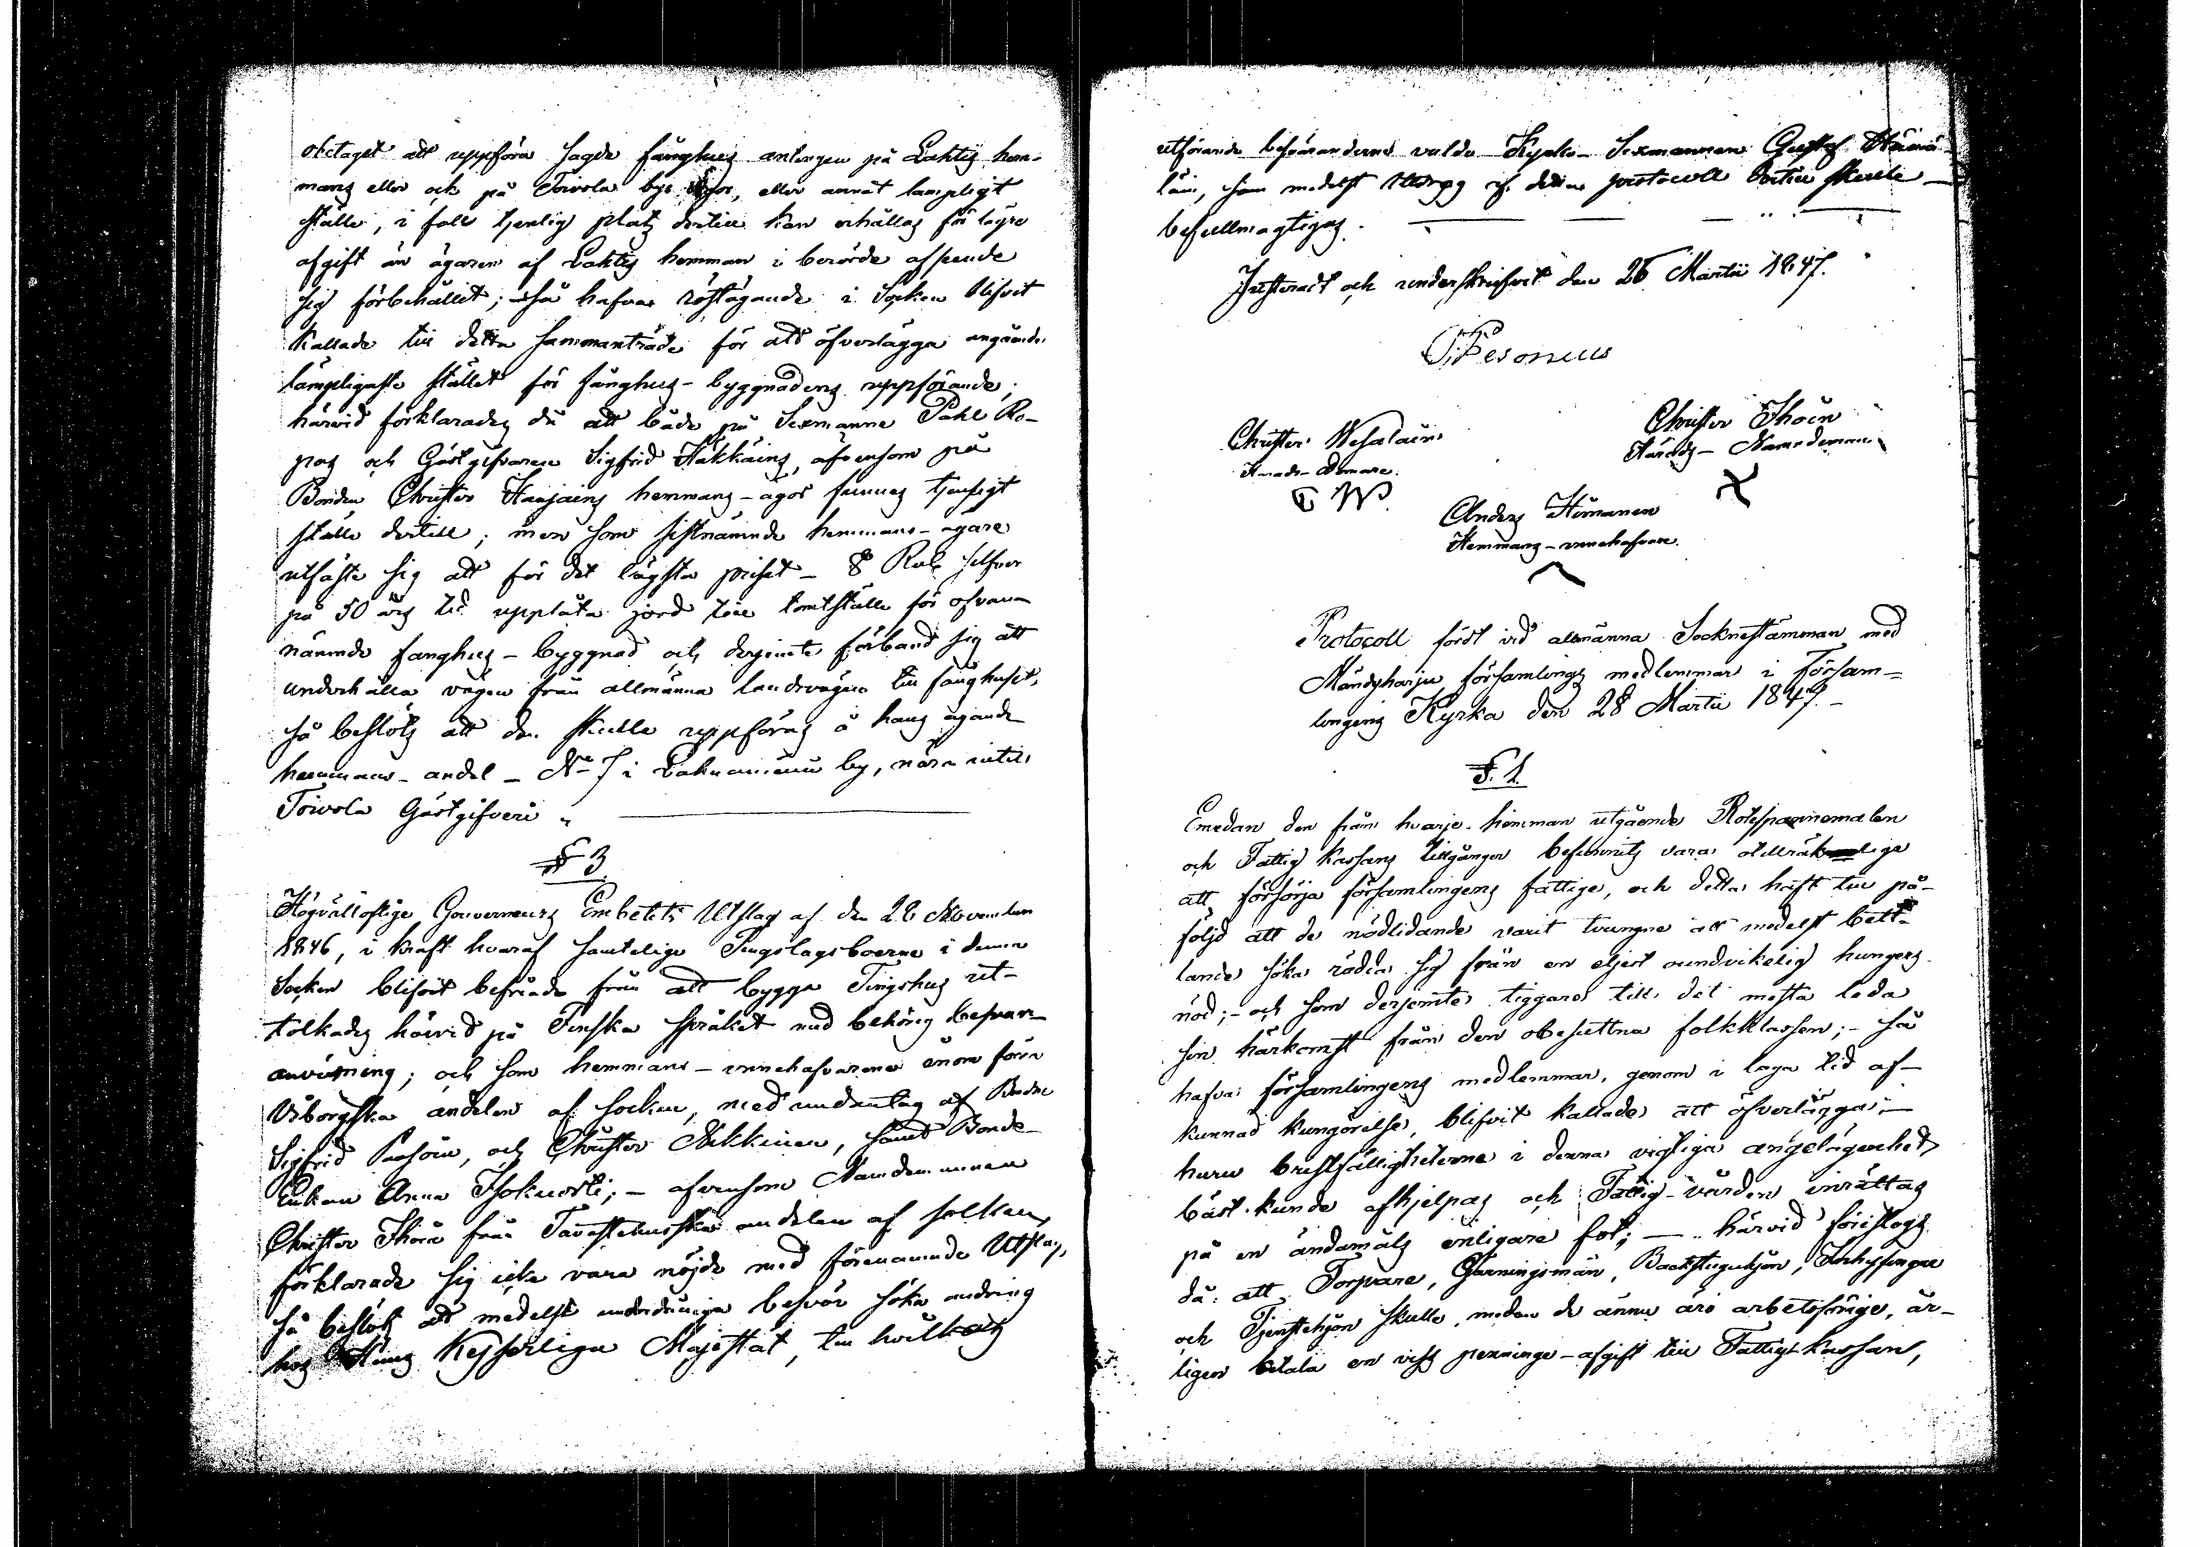 åtaget att uppföra sagde fånghus antingen på Lahtis hem-
mans eller och på Toivola bys ägor, eller annat lämpligt
ställe, i fall tjenlig plats dertill kan erhållas för lägre
afgift än ägaren af Lahtis hemman i berörde afseende
sig förbehållet; så hafva röstägande i Socken blifvit
kallade till detta sammanträde för att öfverlägga angående
lämpligaste stället för fånghus-byggnadens uppförande;
härvid förklarades då att både på Sexmanne Påhl Ro-
pos och Gästgifvaren Sigfrid Häkkäins, äfvensom på
Bonden Christer Haajains hemmans-ägor funnes tjenligt
ställe dertill; men som sistnämnde hemmans-ägare
utfäste sig att för det lägsta priset - 8 Rub. silfver
på 50 års tid upplåta jord till tomtställe för ofvan-
nämnde fånghus-byggnad och derjemte förband sig att
underhålla vägen från allmänna landsvägen till fånghuset,
så beslöts att den skulle uppföras å hans ägande
hemmans-andel - No 7 i Lakuaniemi by, nära intill
Toivola Gästgifveri
§ 3.
Högvälloflige Gouverneurs Embetets Utslag af den 28 November
1846, i kraft hvaraf samtelige Tingslagsboerne i denna
Socken blifvit befriade från att bygga Tingshus ut-
tolkades härvid på Finska språket med behörig besvärs-
anvisning; och som hemmans-innehafvarene inom förra
Viborgska andelen af socken, med undantag af Bonden
Sigfrid Pasoin, och Christer Nikkinen, samt Bonde-
Enkan Anna Isokuorti; - äfvensom Nämdemannen
Christer Ihoin från Tavastehusska andelen af socken,
förklarade sig icke vara nöjde med förenämnde Utslag,
så beslöts att medelst underdåniga besvär söka ändring
hos Hans Kejserliga Majestät, till hvilkas
utförande besvärandene valde Kyrko-Sexmannen Gustaf Hämä-
läin, som medelst Utdrag af detta protocoll dertill skulle
befullmägtigas.
Justeradt och underskrifvit den 26 Martii 1847.
Pesonius
Christer Wesalain
Härads-Domare.
C W.
Christer Ihoin
Härads-Nämndeman
Anders Himanen
Hemmans-innehafvare.
Protocoll fördt vid allmänna Sockenstämman med
Mändyharju församlings medlemmar i Församlin-
lingens Kyrka den 28 Martii 1847.
§. 1.
Emedan den från hvarje hemman utgående Rotespannemålen
och Fattig kassans tillgångar befunnits vara otillräcklige
att försörja församlingens fattige, och detta haft till på-
följd att de nödlidande varit tvungne att medelst bett-
lande söka rädda sig från en eljest oundvikelig hungers
nöd; - och som derjemte tiggare till det mesta leda
sin härkomst från den obesuttna folkklassen; - så
hafva församlingens medlemmar, genom i laga tid af-
kunnad kungörelse, blifvit kallade att öfverlägga; -
huru bristfälligheterne i denna vigtiga angelägenhet
bäst kunde afhjelpas och Fattig-vården inrättas
på en ändamåls enligare fot; - härvid föreslogs
då: att Torpare, Gerningsmän, Backstuguhjon, Inhysingar
och Tjenstehjon skulle, medan de ännu äro arbetsföre, år-
ligen betala en viss penninge-afgift till Fattigkassan,